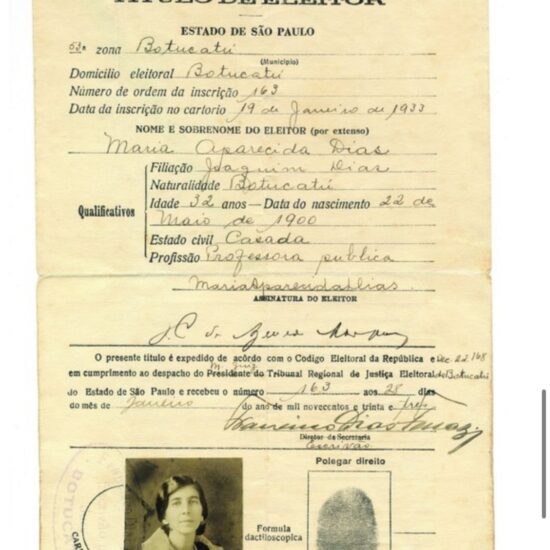 TITULO DE ELEITOR
ESTADO DE SÃO PAULO
63ª zona Botucatú
(Município)
Domicilio eleitoral Botucatú
Número de ordem da inscrição 163
Data da inscrição no cartorio 19 de Janeiro de 1933
NOME E SOBRENOME DO ELEITOR (por extenso)
Maria Aparecida Dias
Filiação Joaquim Dias
Naturalidade Botucatú
Idade 32 anos — Data do nascimento 22 de
Maio de 1900
Qualificativos
Estado civil Casada
Profissão Professora publica
Maria Aparecida Dias
ASSINATURA DO ELEITOR
O presente titulo é expedido de acôrdo com o Codigo Eleitoral da República e Dec. 22.168
em cumprimento ao despacho do Presidente do Tribunal Regional de Justiça Eleitoral de Botucatú
M. Juiz
do Estado de São Paulo e recebeu o número 163 aos 28 dias
do mês de Janeiro do ano de mil novecentos e trinta e tres
Diretor da Secretaria
Escrivão
Polegar direito
Formula
dactiloscopica
BOTUCA